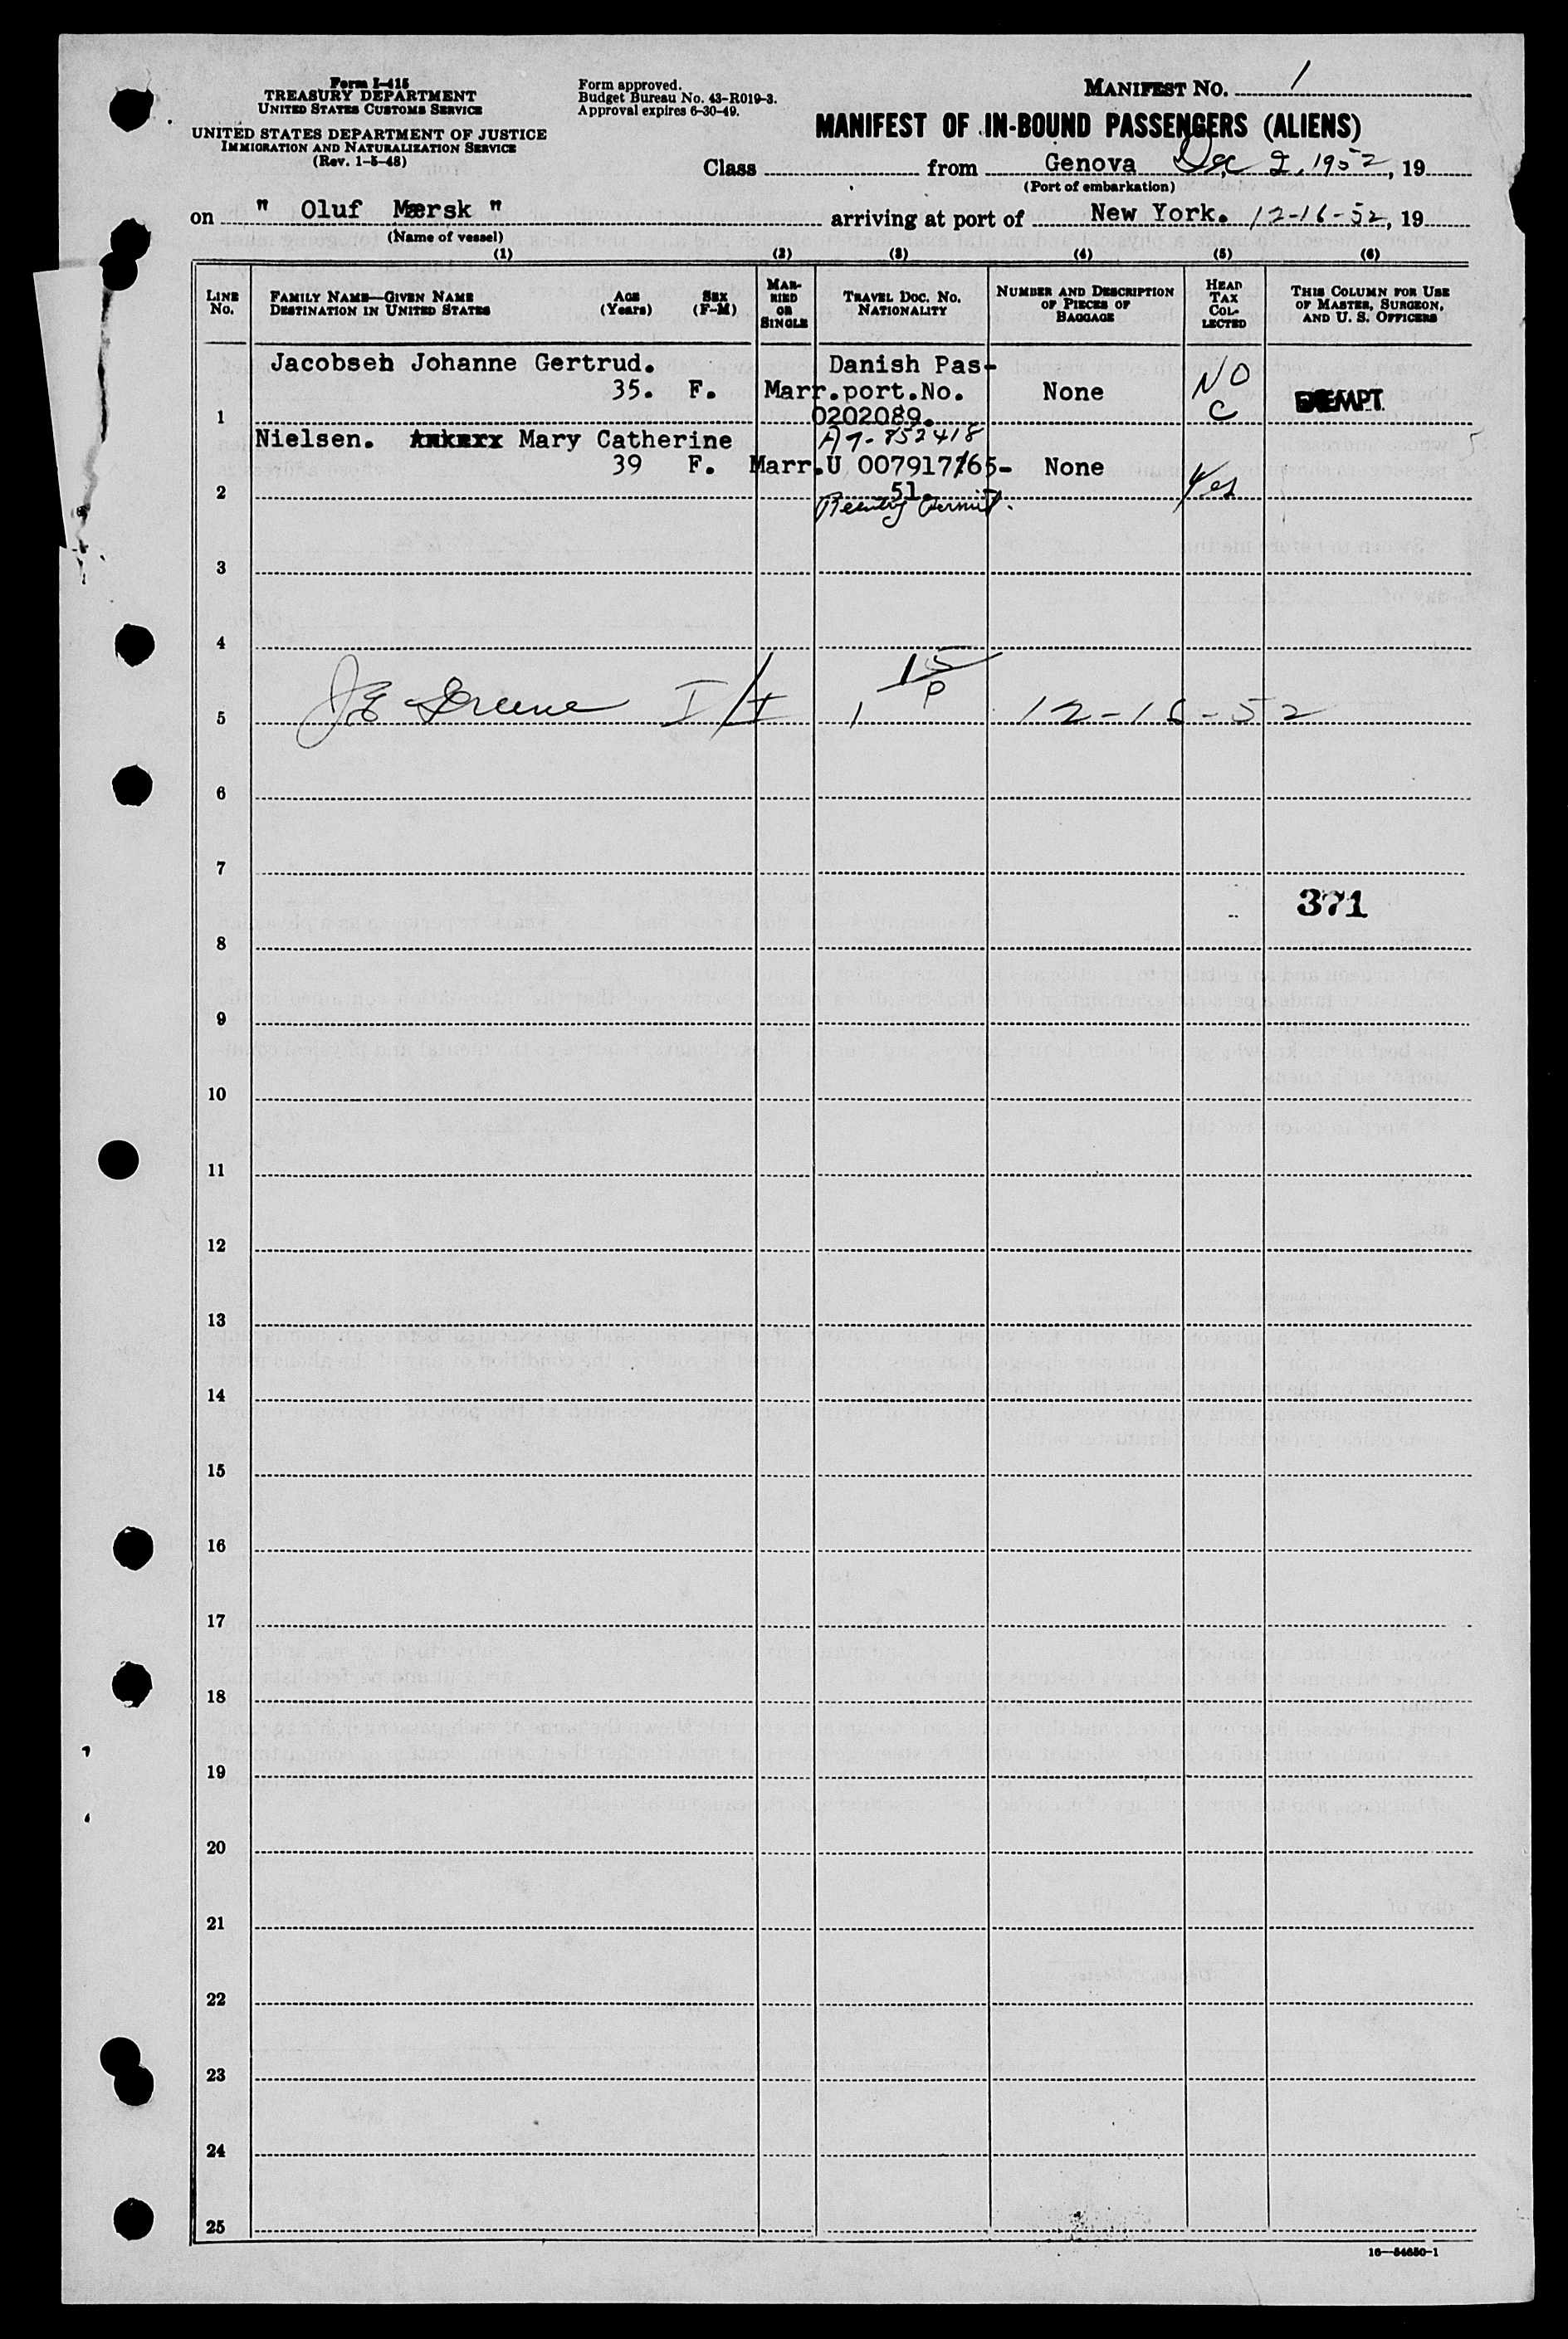 Form I-415
TREASURY DEPARTMENT
UNITED STATES CUSTOMS SERVICE
UNITED STATES DEPARTMENT OF JUSTICE
IMMIGRATION AND NATURALIZATION SERVICE
(Rev. 1-5-48)
Form approved.
Budget Bureau No. 43-R019-3.
Approval expires 6-30-49.
MANIFEST NO. 1
MANIFEST OF IN-BOUND PASSENGERS (ALIENS)
Class from Genova Dec 2, 1952, 19
(Port of embarkation)
on " Oluf Mærsk " arriving at port of New York. 12-16-52, 19
(Name of vessel)
(1) (2) (3) (4) (5) (6)
LINE NO.
FAMILY NAME—GIVEN NAME AGE SEX
DESTINATION IN UNITED STATES (Years) (F-M)
MARRIED OR SINGLE
TRAVEL DOC. NO.
NATIONALITY
NUMBER AND DESCRIPTION
OF PIECES OF
BAGGAGE
HEAD
TAX
COL-
LECTED
THIS COLUMN FOR USE
OF MASTER, SURGEON,
AND U. S. OFFICERS
Jacobsen Johanne Gertrud. Danish Pas-
35. F. Marr.port.No. None NO
1 0202089. C EXEMPT
Nielsen. Mary Catherine A7-852418
39 F. Marr.U 007917/65- None Yes
2 51.
Reentry Permit.
3
4
15
P
5 JE Greene I/I 1 12-16-52
6
7
371
8
9
10
11
12
13
14
15
16
17
18
19
20
21
22
23
24
25
16—54650-1